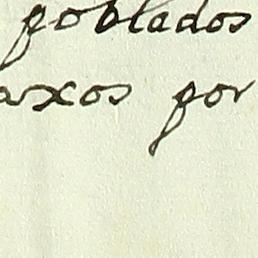 poblados
axos por